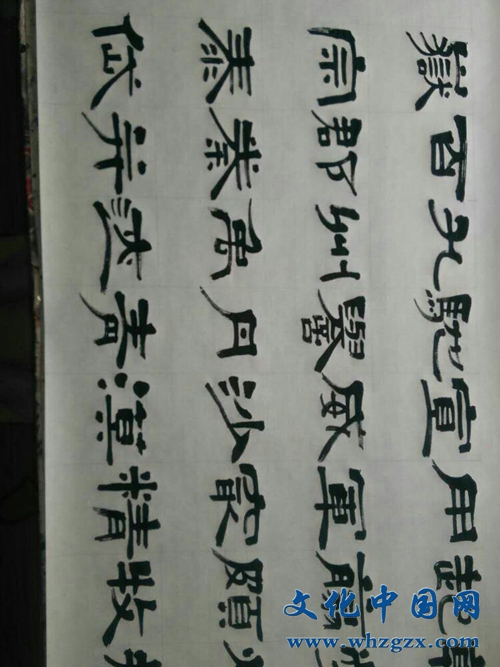 起翦頗牧
用軍最精
宣威沙漠
馳譽丹青
九州禹迹
百郡秦并
嶽宗泰岱
文化中国网
www.whzgzx.com